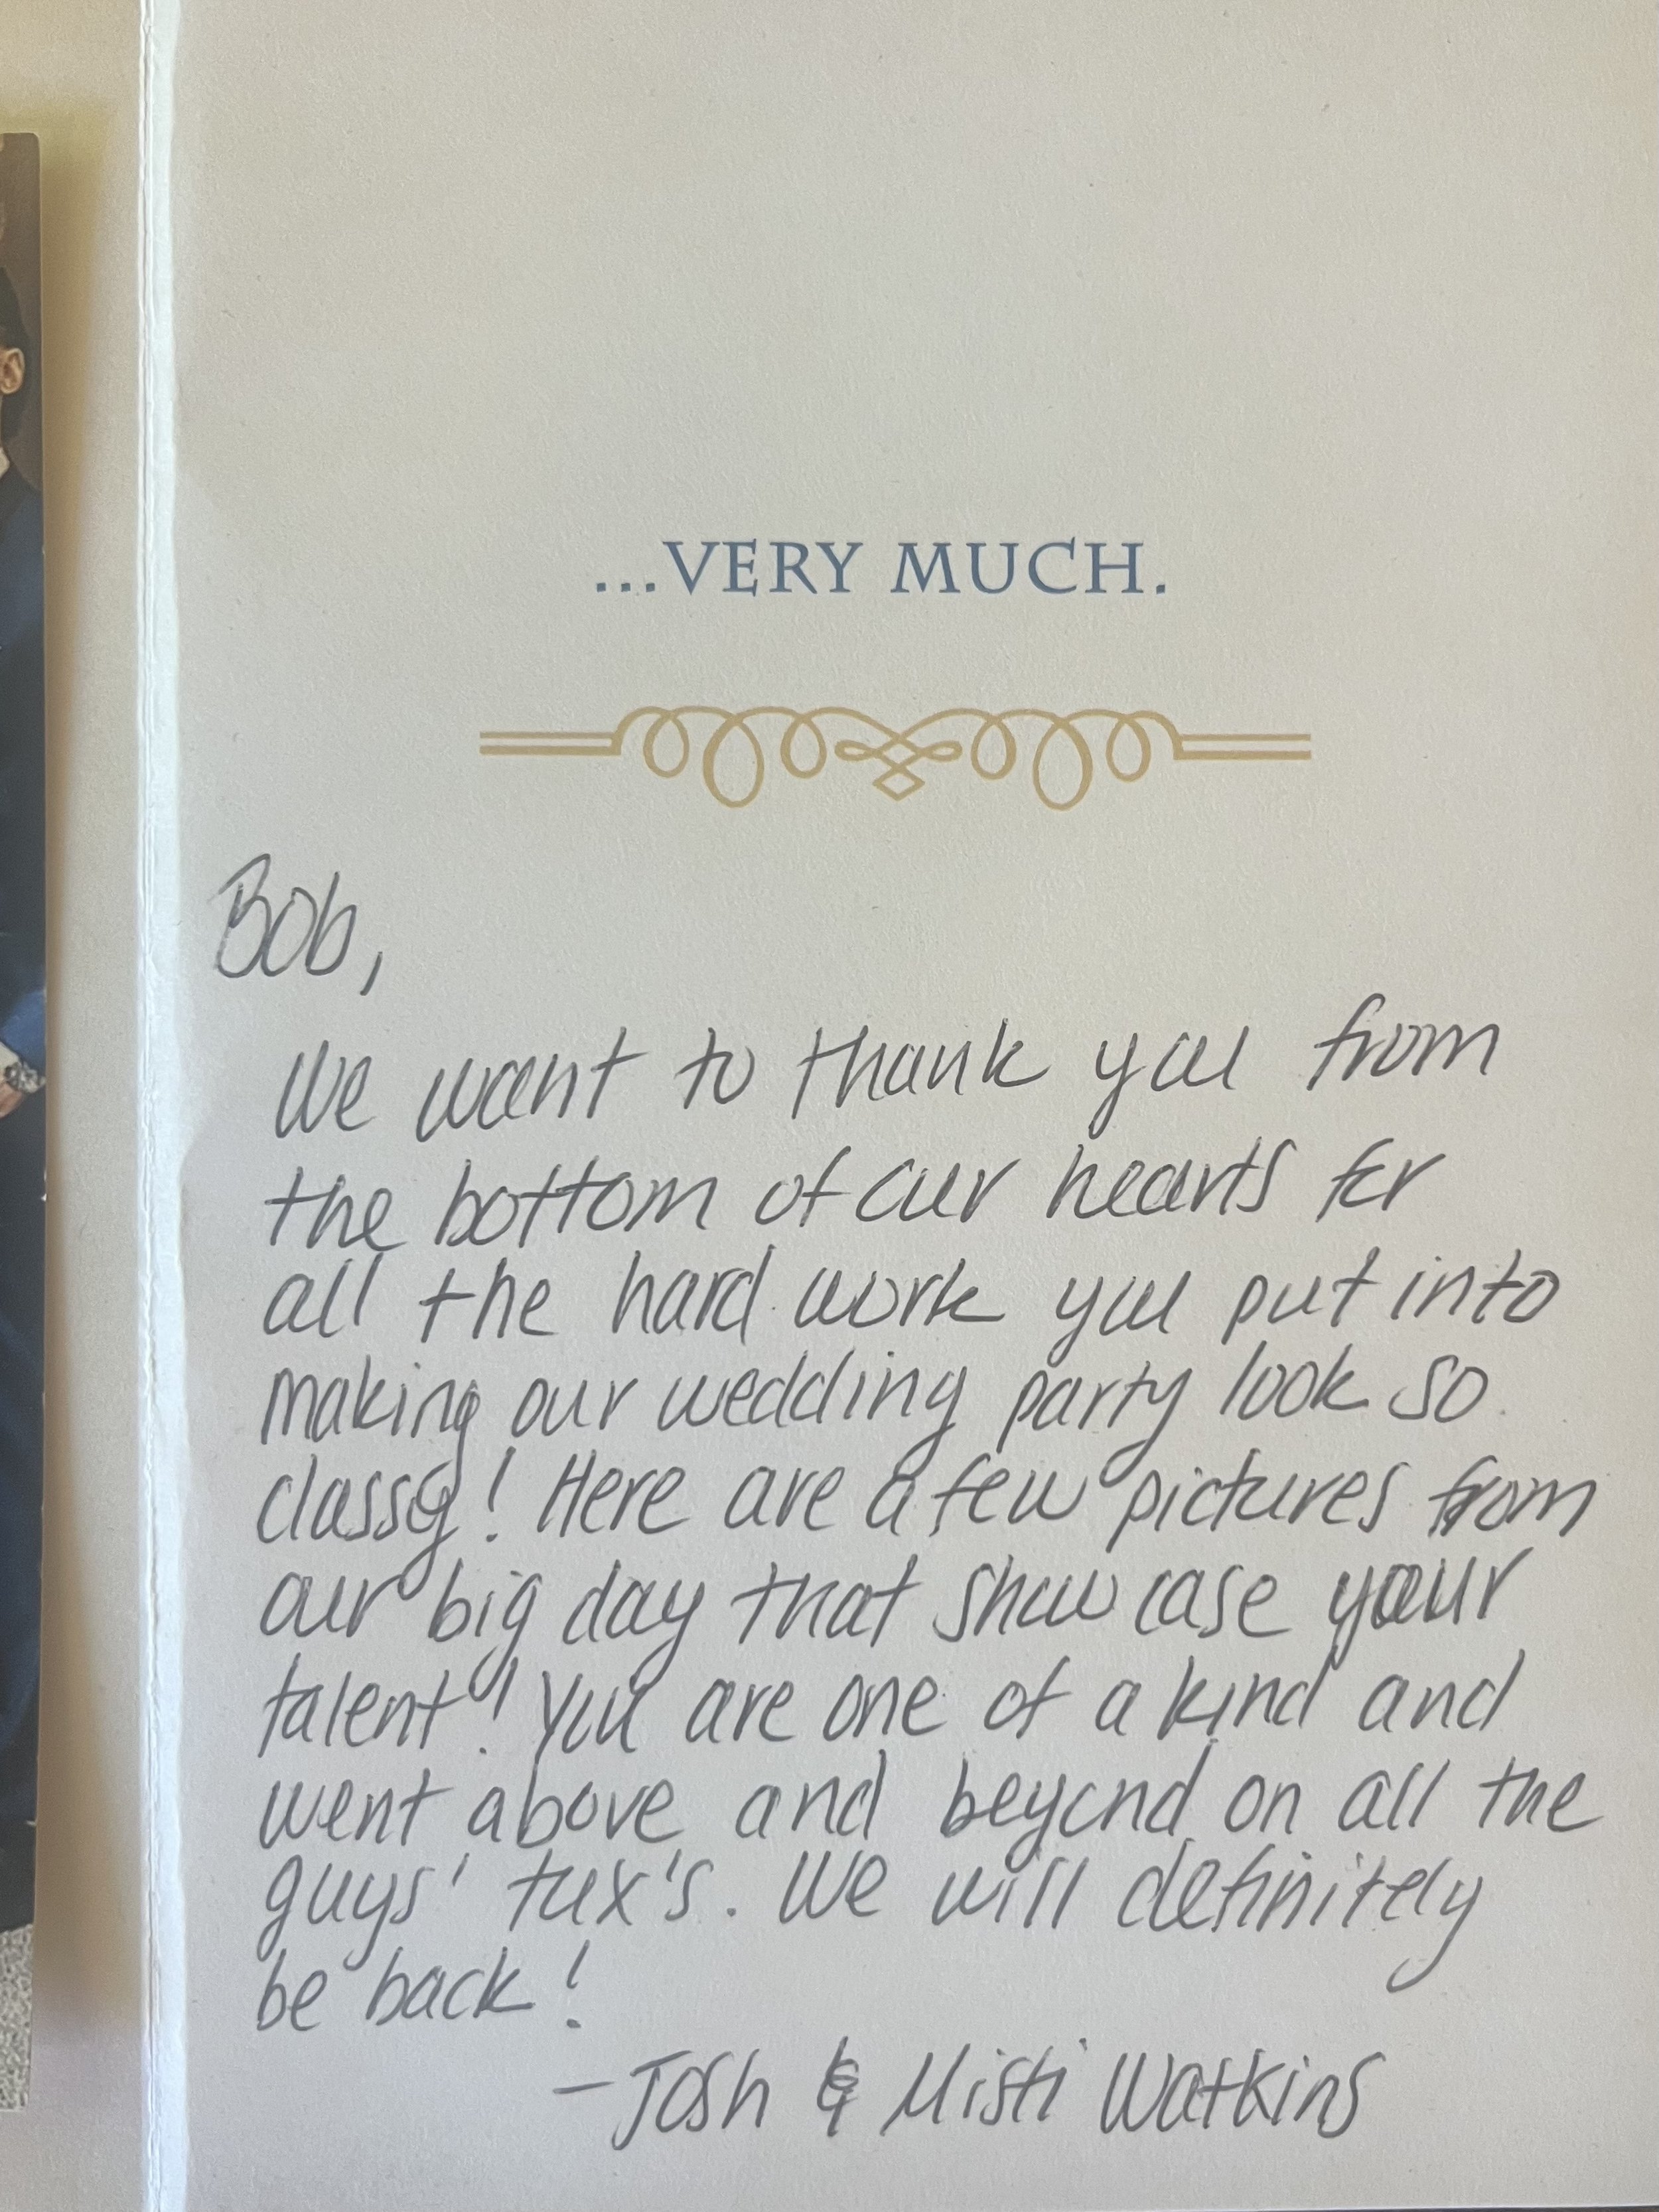 ...VERY MUCH.
Bob,
We want to thank you from
the bottom of our hearts for
all the hard work you put into
making our wedding party look so
classy! Here are a few pictures from
our big day that showcase your
talent! You are one of a kind and
went above and beyond on all the
guys' tux's. We will definitely
be back!
- Josh & Misti Watkins